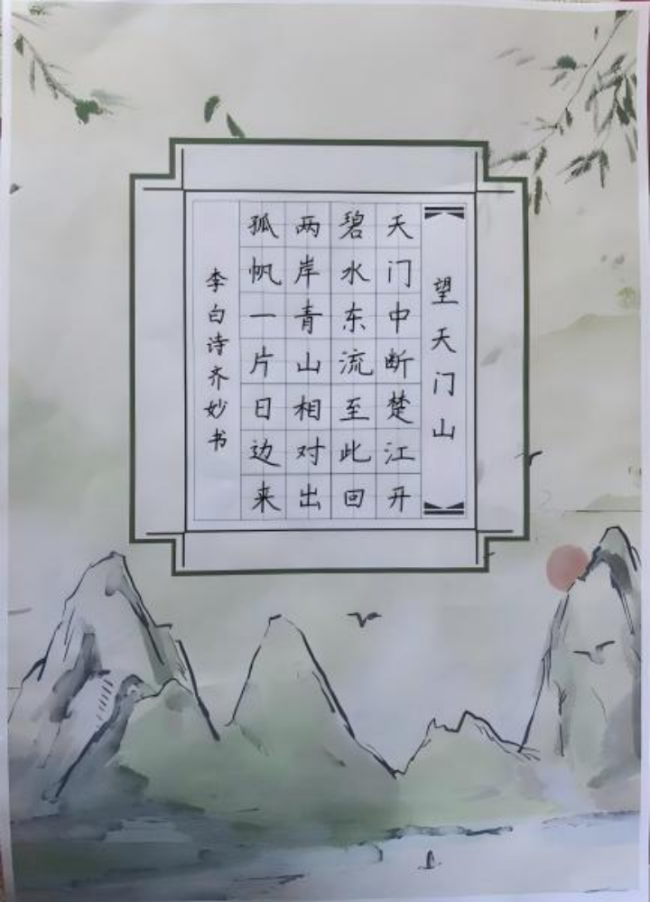 望天门山
天门中断楚江开
碧水东流至此回
两岸青山相对出
孤帆一片日边来
李白诗齐妙书